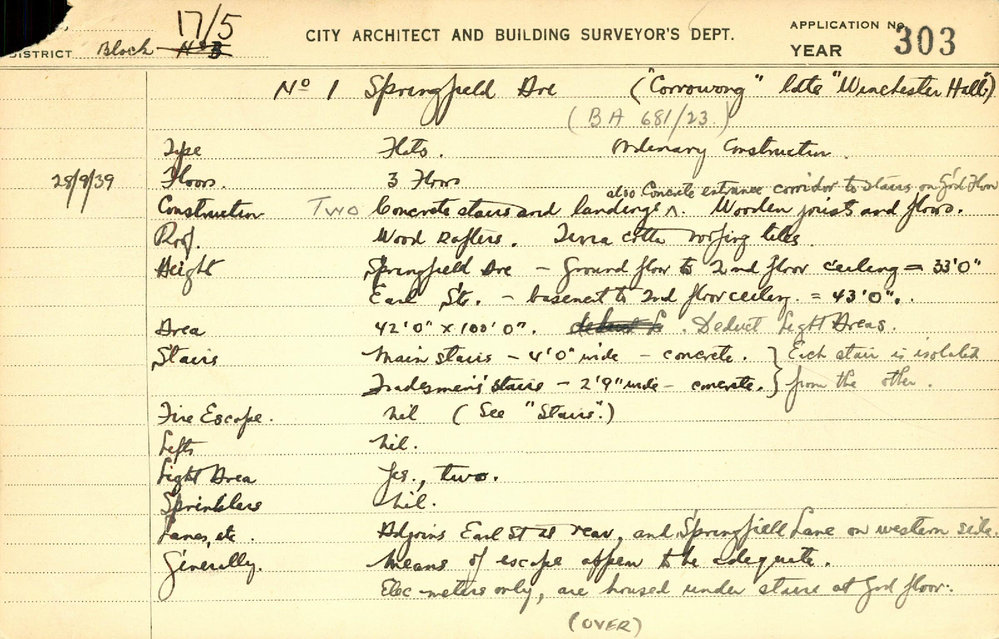 17/5
DISTRICT Block No B
CITY ARCHITECT AND BUILDING SURVEYOR'S DEPT.
APPLICATION No. 303
YEAR
No 1 Springfield Ave ("Corrowong" late "Winchester Hall")
(BA 681/23.)
Type Flats. Ordinary Construction.
28/9/39 Floors. 3 Floors
also Concrete entrance corridor to stairs on Grd Floor
Construction Two Concrete stairs and landings ^. Wooden joists and floors.
Roof. Wood Rafters. Terra cotta roofing tiles.
Height Springfield Ave - Ground floor to 2nd floor ceiling = 33'0"
Earl Str. - basement to 2nd floor ceiling. = 43'0".
Area 42'0" x 100'0". deduct . Deduct Light Areas.
Stairs Main Stairs - 4'0" wide - concrete. } Each stair is isolated
Tradesmen's stairs - 2'9" wide - concrete. } from the other.
Fire Escape. Nil (See "Stairs".)
Lifts Nil.
Light Area Yes., two.
Sprinklers Nil.
Lanes, etc. Adjoins Earl St at rear, and Springfield Lane on western side.
Generally. Means of escape appear to be adequate.
Elec meters only, are housed under stairs at Grd floor.
(OVER)